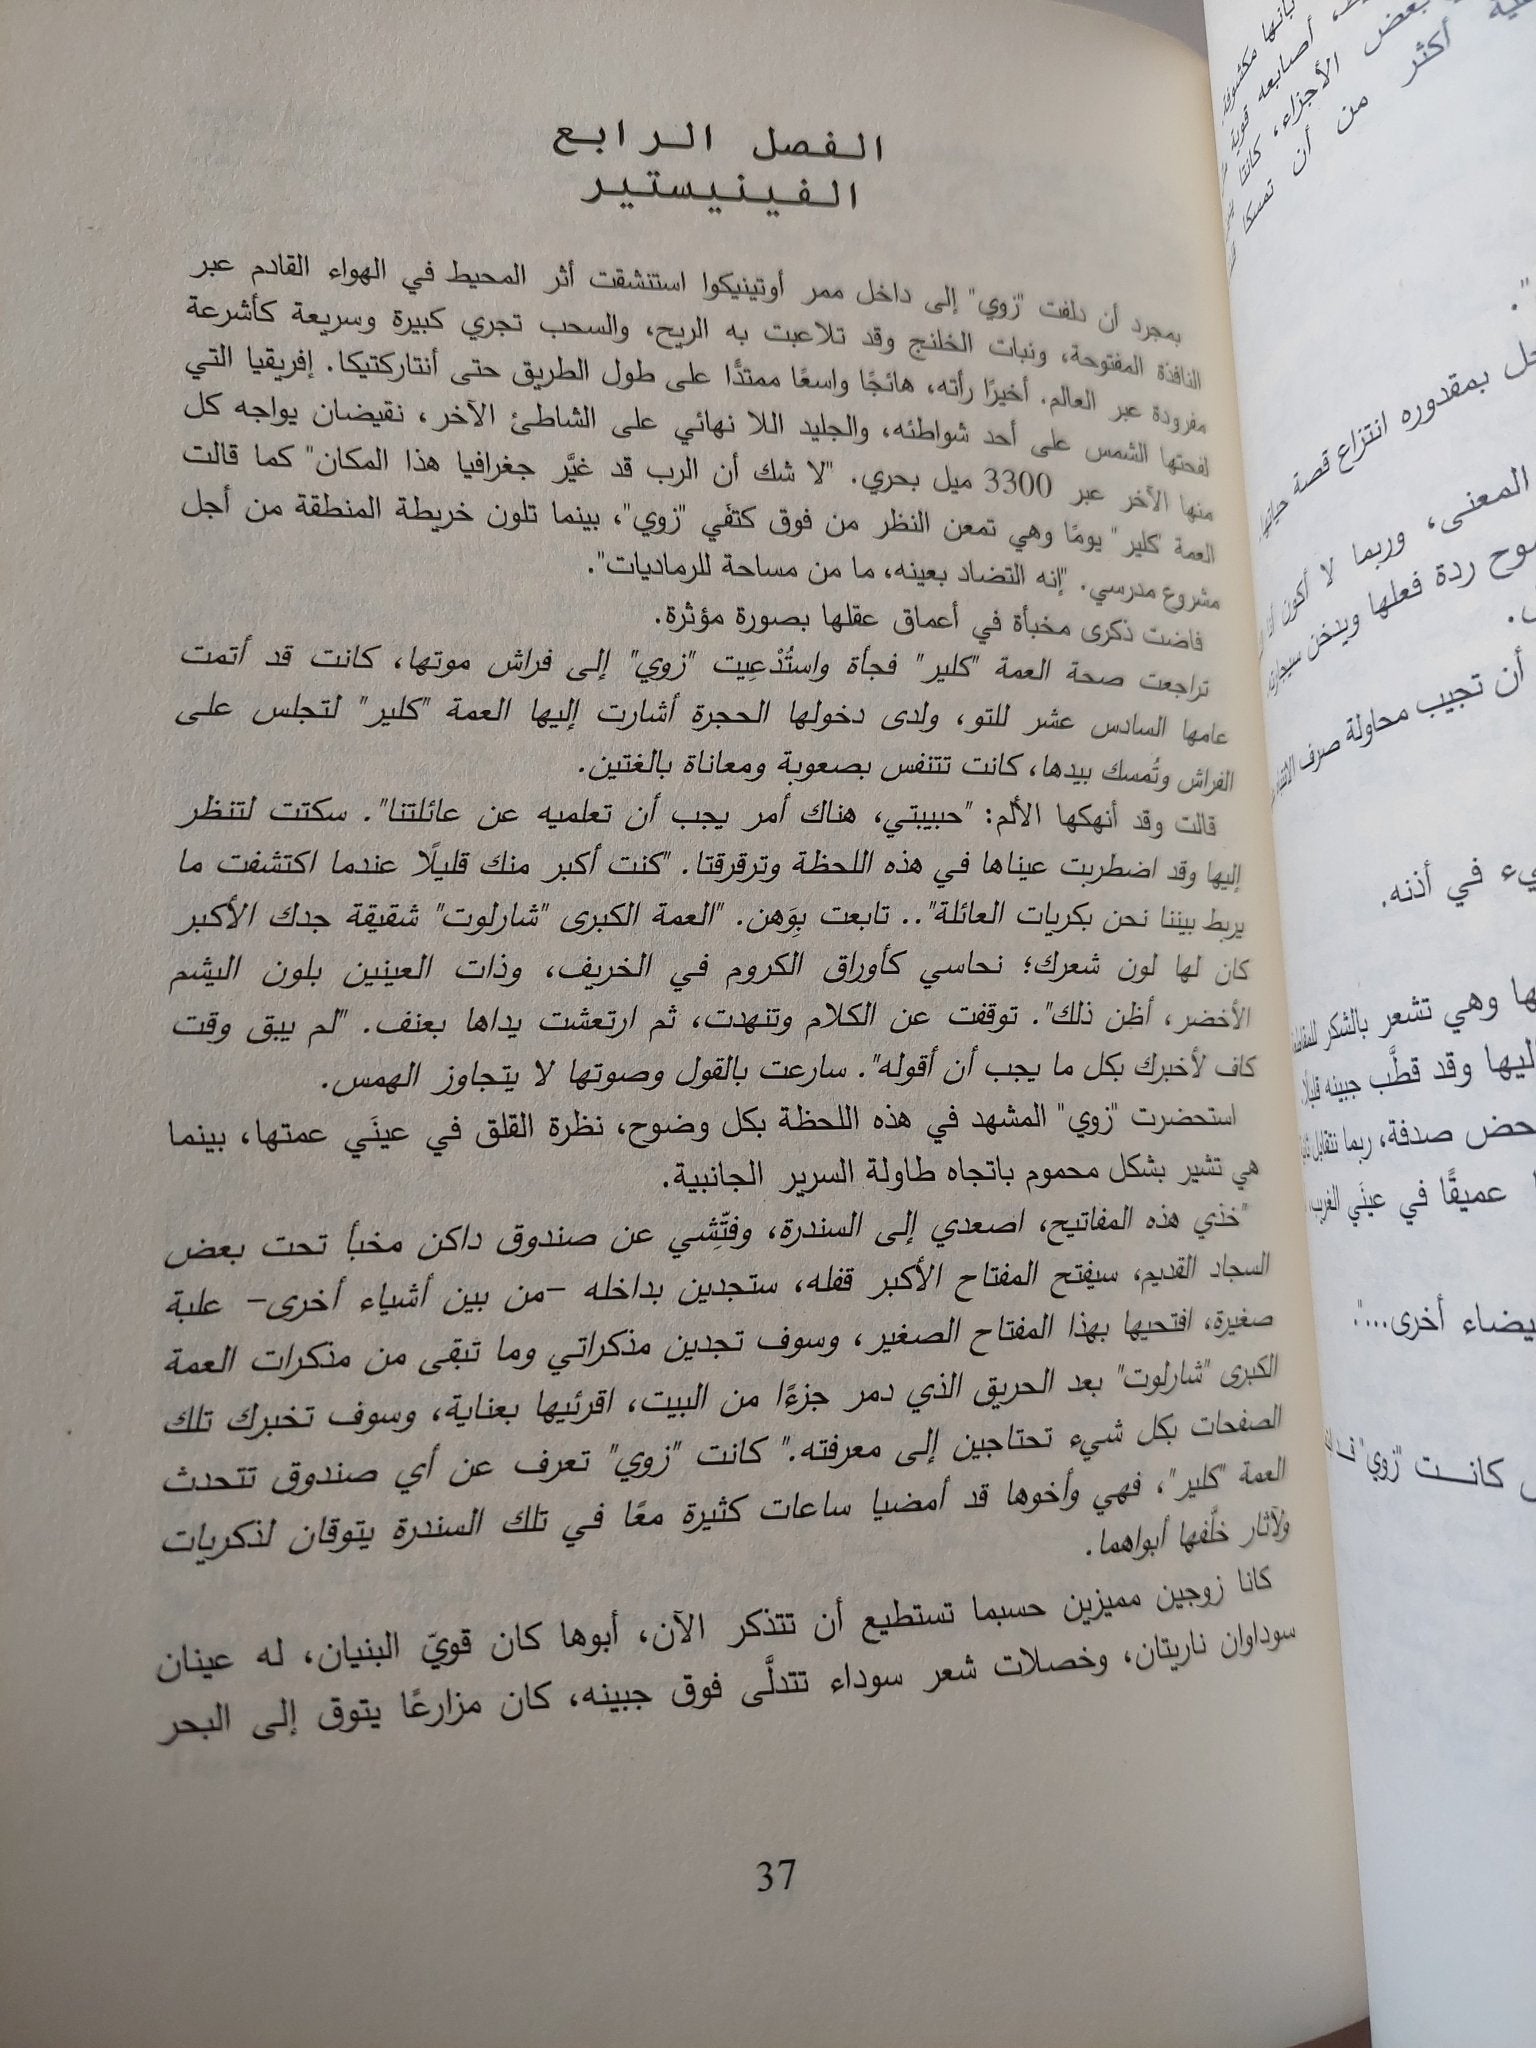 الفصل الرابع
الفينيستير
بمجرد أن دلفت "زوي" إلى داخل ممر أوتينيكوا استنشقت أثر المحيط في الهواء القادم عبر
النافذة المفتوحة، ونبات الخلنج وقد تلاعبت به الريح، والسحب تجري كبيرة وسريعة كأشرعة
مفرودة عبر العالم. أخيرًا رأته، هائجًا واسعًا ممتدًّا على طول الطريق حتى أنتاركتيكا. إفريقيا التي
لفحتها الشمس على أحد شواطئه، والجليد اللا نهائي على الشاطئ الآخر، نقيضان يواجه كل
منها الآخر عبر 3300 ميل بحري. "لا شك أن الرب قد غيَّر جغرافيا هذا المكان" كما قالت
العمة "كلير" يومًا وهي تمعن النظر من فوق كتفَي "زوي"، بينما تلون خريطة المنطقة من أجل
مشروع مدرسي. "إنه التضاد بعينه، ما من مساحة للرماديات".
فاضت ذكرى مخبأة في أعماق عقلها بصورة مؤثرة.
تراجعت صحة العمة "كلير" فجأة واستُدْعِيت "زوي" إلى فراش موتها، كانت قد أتمت
عامها السادس عشر للتو، ولدى دخولها الحجرة أشارت إليها العمة "كلير" لتجلس على
الفراش وتُمسك بيدها، كانت تتنفس بصعوبة ومعاناة بالغتين.
قالت وقد أنهكها الألم: "حبيبتي، هناك أمر يجب أن تعلميه عن عائلتنا". سكتت لتنظر
إليها وقد اضطربت عيناها في هذه اللحظة وترقرقتا. "كنت أكبر منك قليلًا عندما اكتشفت ما
يربط بيننا نحن بكريات العائلة".. تابعت بِوَهن. "العمة الكبرى "شارلوت" شقيقة جدك الأكبر
كان لها لون شعرك؛ نحاسي كأوراق الكروم في الخريف، وذات العينين بلون اليشم
الأخضر، أظن ذلك". توقفت عن الكلام وتنهدت، ثم ارتعشت يداها بعنف. "لم يبق وقت
كاف لأخبرك بكل ما يجب أن أقوله". سارعت بالقول وصوتها لا يتجاوز الهمس.
استحضرت "زوي" المشهد في هذه اللحظة بكل وضوح، نظرة القلق في عينَي عمتها، بينما
هي تشير بشكل محموم باتجاه طاولة السرير الجانبية.
"خذي هذه المفاتيح، اصعدي إلى السندرة، وفتِّشِي عن صندوق داكن مخبأ تحت بعض
السجاد القديم، سيفتح المفتاح الأكبر قفله، ستجدين بداخله –من بين أشياء أخرى– علبة
صغيرة، افتحيها بهذا المفتاح الصغير، وسوف تجدين مذكراتي وما تبقى من مذكرات العمة
الكبرى "شارلوت" بعد الحريق الذي دمر جزءًا من البيت، اقرئيها بعناية، وسوف تخبرك تلك
الصفحات بكل شيء تحتاجين إلى معرفته." كانت "زوي" تعرف عن أي صندوق تتحدث
العمة "كلير"، فهي وأخوها قد أمضيا ساعات كثيرة معًا في تلك السندرة يتوقان لذكريات
ولآثار خلَّفها أبواهما.
كانا زوجين مميزين حسبما تستطيع أن تتذكر الآن، أبوها كان قويّ البنيان، له عينان
سوداوان ناريتان، وخصلات شعر سوداء تتدلَّى فوق جبينه، كان مزارعًا يتوق إلى البحر
37
بأنها مكشوفة
أصابعه قوية
بعض الأجزاء، كانتا
أكثر من أن تمسكا
بمقدوره انتزاع قصة حياتها
المعنى، وربما لا أكون
ردة فعلها ويدخن
أن تجيب محاولة صرف
في أذنه.
وهي تشعر بالشكر
وقد قطَّب جبينه قليلًا
صدفة، ربما نتقابل
عميقًا في عينَي الغريب
أخرى...".
كانت "زوي"